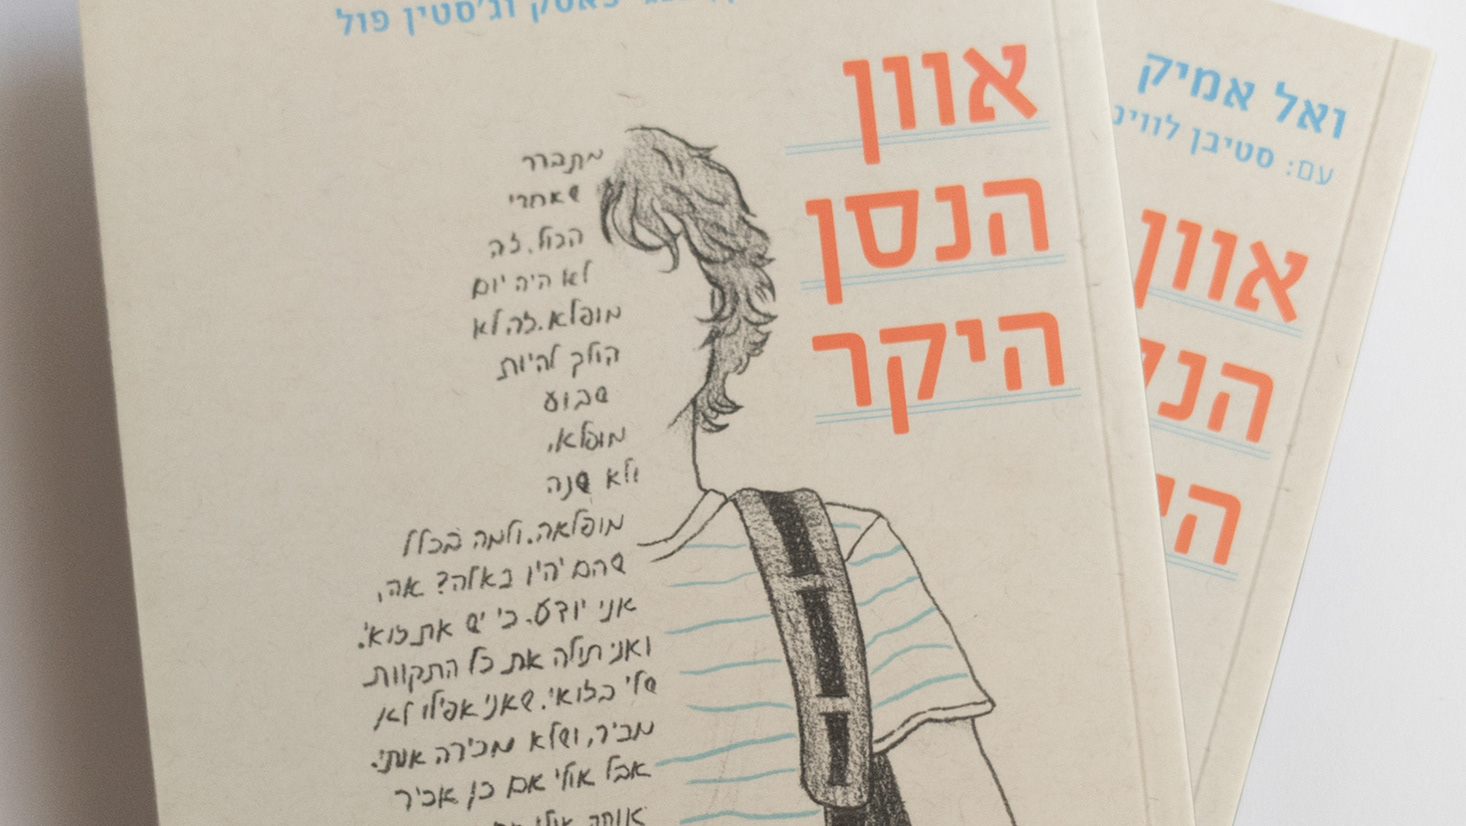 פאסק וג'סטין פול
אוון
הנסן
היקר
מתברר
שאחרי
הכול. זה
לא היה יום
מופלא. זה לא
הולך להיות
שבוע
מופלא,
ולא שנה
מופלאה. ולמה בכלל
שהם יהיו כאלה? אה,
אני יודע. כי יש את זואי.
ואני תולה את כל התקוות
שלי בזואי. שאני אפילו לא
מכיר, ושלא מכירה אותי.
אבל אולי אם כן אכיר
אותה, אולי
ואל אמיק
עם: סטיבן לווינ
אוון
הנ
הי